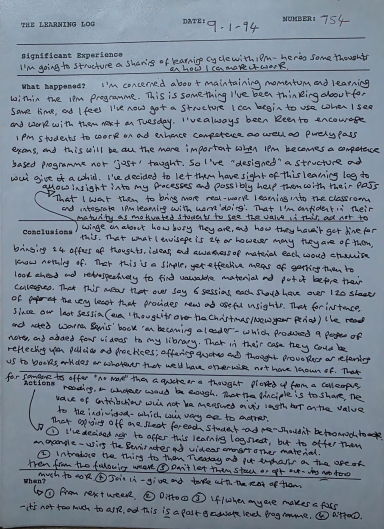 THE LEARNING LOG DATE: 9-1-94 NUMBER: 754
Significant Experience
I'm going to structure a sharing of learning cycle with IPM - here's some thoughts
on how I can make it work.
What happened? I'm concerned about maintaining momentum and learning
within the IPM programme. This is something I've been thinking about for
some time, and I feel I've now got a structure I can begin to use when I see
and work with them next on Tuesday. I've always been keen to encourage
IPM students to work on and enhance competence as well as purely pass
exams, and this will be all the more important when IPM becomes a competence
based programme not 'just' taught. So I've "designed" a structure and
will give it a whirl. I've decided to let them have sight of this learning log to
allow insight into my processes and possibly help them with their
That I want them to bring more real-work learning into the classroom
and integrate IPM learning with work 'doing'. That I'm confident in their
maturity as motivated students to see the value in this, and not to
Conclusions whinge on about how busy they are, and how they haven't got time for
this. That what I envisage is 24 or however many they are of them,
bringing 24 offers of thoughts, ideas, and awareness of material each would otherwise
know nothing of. That this is a simple, yet effective means of getting them to
look ahead and retrospectively to find valuable material and put it before their
colleagues. That this means that over say 6 sessions each should have over 120 sheets
of paper at the very least that provides new and useful insights. That for instance,
since our last session (over 'thoughts' over the Christmas/New year Period) I've read
and noted Warren Bennis' book 'on becoming a leader' - which produced 9 pages of
notes, and added four videos to my library. That in their case they could be
reflecting upon policies and practices; offering quotes and thought provokers or referring
us to books, articles or whatever that we'll have otherwise not have known of. That
for someone to offer "no more" than a quote or a thought picked up from a colleague,
Actions reading, or whatever would be enough. That the principle is to share, the
value of contributions will not be measured on its length but on the value
to the individual - which will vary as to matter.
That copying off one sheet for each student and me - shouldn't be too much to ask.
① I've decided not to offer this learning log sheet, but to offer them
an example - using the Bennis notes and videos amongst other material.
② Introduce the thing to them Tuesday and put emphasis on the use of
them from the following week ③ Don't let them stall or opt out - its not too
much to ask ④ Join in - give and take with the rest of them
When?
① From next week. ② Ditto ③ If/when anyone makes a fuss
- its not too much to ask, and this is a post graduate level programme. ④ Ditto ①.